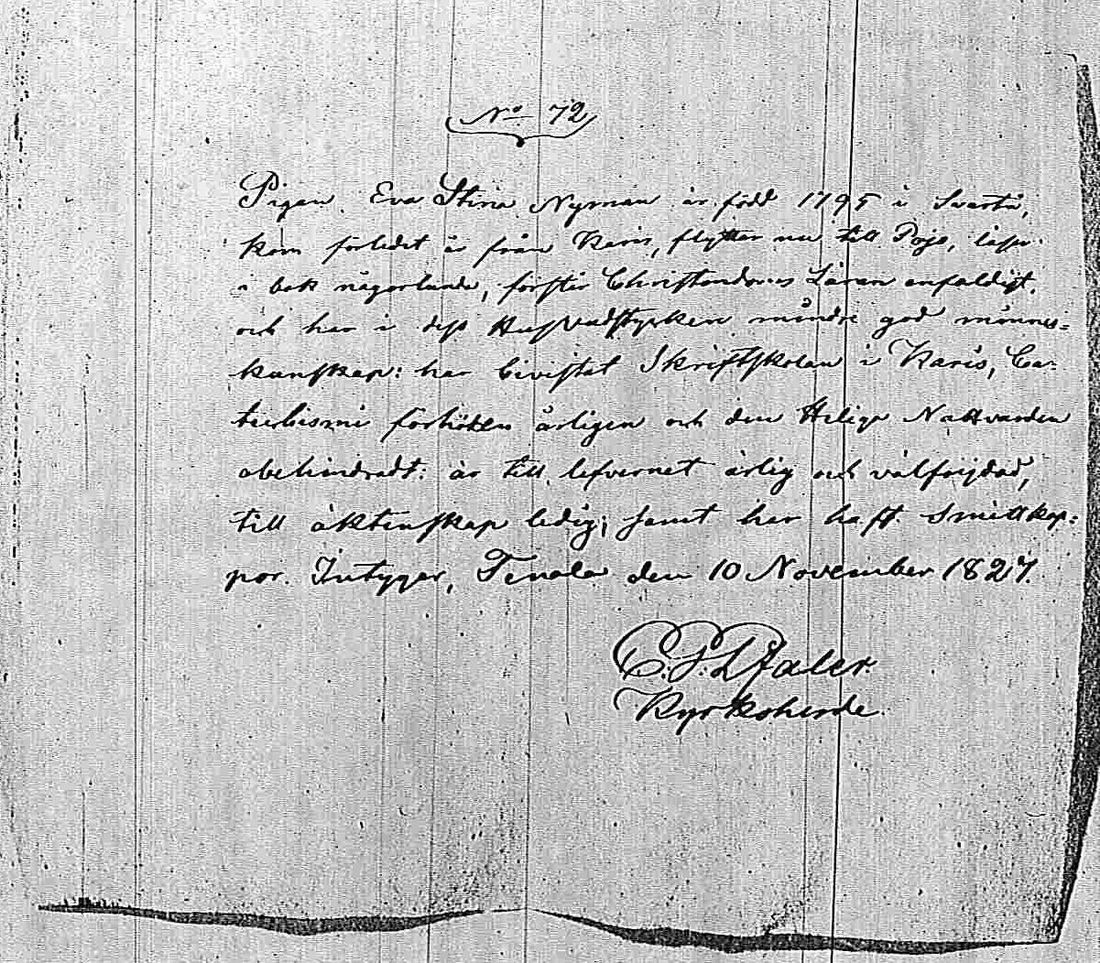 No 72
Pigan Eva Stina Nyman är född 1795 i Svartå,
kom förledit år från Karis, flytter nu till Pojo, läser
i bok någorlunda, förstår Christendomens Läran enfaldigt,
och har i dess Hufvudstycken mindre god minnes-
kunskap: har bivistat Skriftskolan i Karis, Ca-
techismi förhören årligen och den Helige Nattvarden
obehindradt: är till lefvernet ärlig och välfrejdad,
till äktenskap ledig; samt har haft Smittkop-
por. Intygar, Tenala den 10 November 1827.
Kyrkoherde